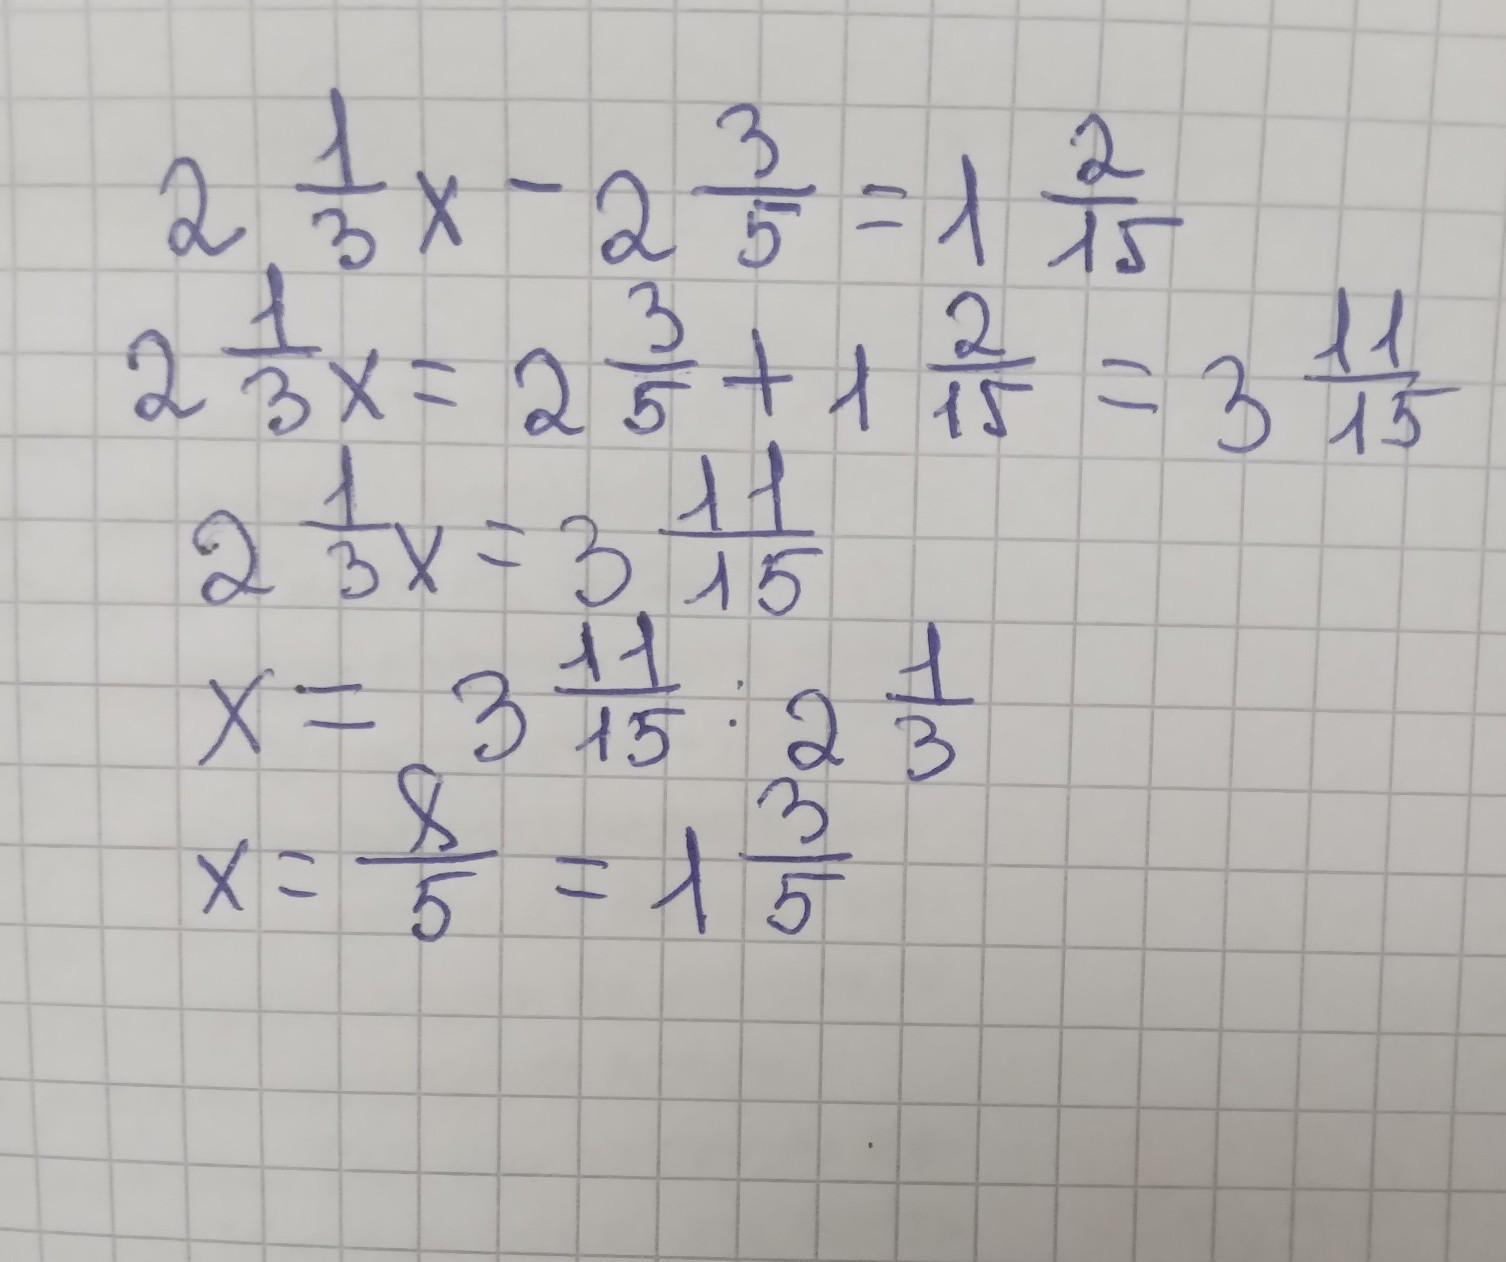 2 1/3 x - 2 3/5 = 1 2/15
2 1/3 x = 2 3/5 + 1 2/15 = 3 11/15
2 1/3 x = 3 11/15
x = 3 11/15 : 2 1/3
x = 8/5 = 1 3/5